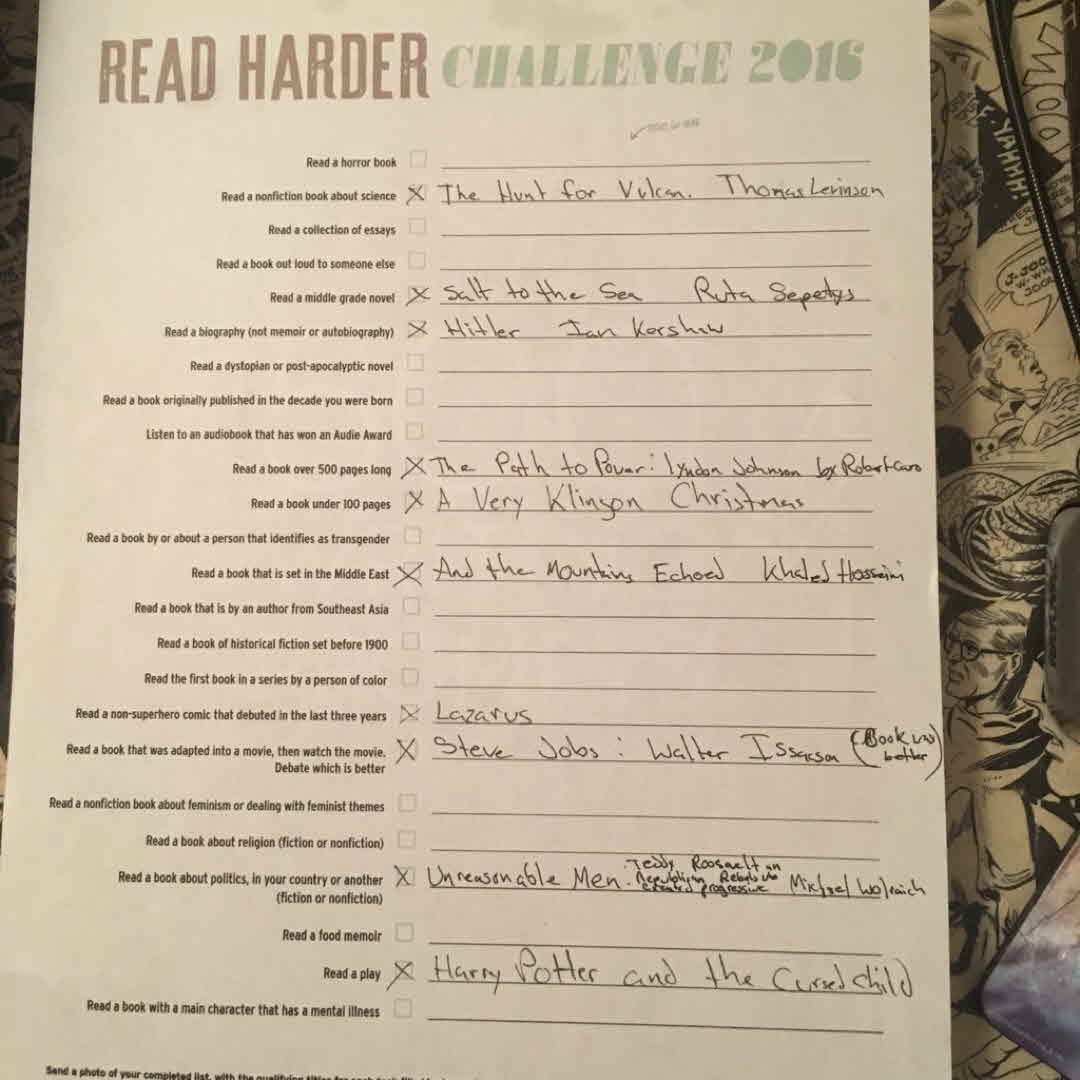 READ HARDER CHALLENGE 2016
Read a horror book
Read a nonfiction book about science X The Hunt for Vulcan. Thomas Levinson
Read a collection of essays
Read a book out loud to someone else
Read a middle grade novel X Salt to the Sea Ruta Sepetys
Read a biography (not memoir or autobiography) X Hitler Ian Kershaw
Read a dystopian or post-apocalyptic novel
Read a book originally published in the decade you were born
Listen to an audiobook that has won an Audie Award
Read a book over 500 pages long X The Path to Power: Lyndon Johnson by Robert Caro
Read a book under 100 pages X A Very Klingon Christmas
Read a book by or about a person that identifies as transgender
Read a book that is set in the Middle East X And the Mountains Echoed Khaled Hosseini
Read a book that is by an author from Southeast Asia
Read a book of historical fiction set before 1900
Read the first book in a series by a person of color
Read a non-superhero comic that debuted in the last three years X Lazarus
Read a book that was adapted into a movie, then watch the movie. X Steve Jobs: Walter Issacson (Book was
Debate which is better better)
Read a nonfiction book about feminism or dealing with feminist themes
Read a book about religion (fiction or nonfiction)
Read a book about politics, in your country or another X Unreasonable Men. Teddy Roosevelt Republican Rebels created progressive Michael Wolraich
(fiction or nonfiction)
Read a food memoir
Read a play X Harry Potter and the Cursed Child
Read a book with a main character that has a mental illness
Send a photo of your completed list, with the qualifying titles for each task
YAHHH